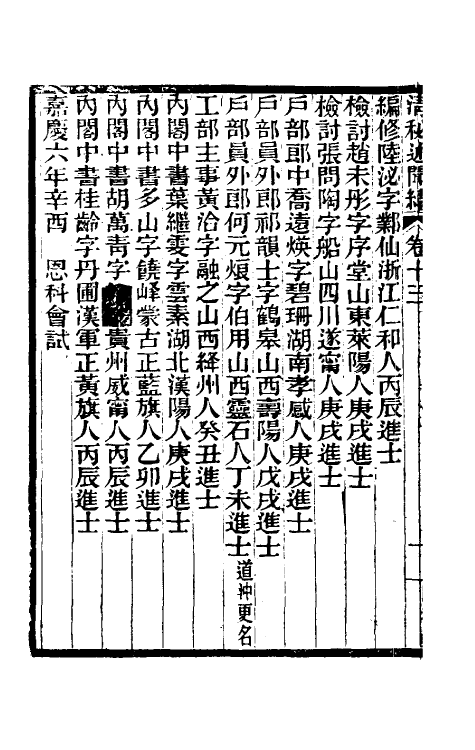 清秘述聞續 卷十三
編修陸泌字鄴仙浙江仁和人丙辰進士
檢討趙未彤字序堂山東萊陽人庚戌進士
檢討張問陶字船山四川遂甯人庚戌進士
戶部郎中喬遠煐字碧珊湖南孝感人庚戌進士
戶部員外郎祁韻士字鶴皋山西壽陽人戊戌進士
戶部員外郎何元烺字伯用山西靈石人丁未進士道冲更名
工部主事黃洽字融之山西絳州人癸丑進士
內閣中書葉繼雯字雲素湖北漢陽人庚戌進士
內閣中書多山字饒峰蒙古正藍旗人乙卯進士
內閣中書胡萬青字貴州威甯人丙辰進士
內閣中書桂齡字丹圃漢軍正黃旗人丙辰進士
嘉慶六年辛酉 恩科會試